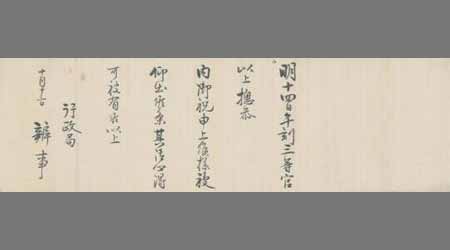 明十四日午刻三等官
以上惣参
内御祝申上候様被
仰出候条其旨心得
可被有候以上
十月十三日
行政局
辨事